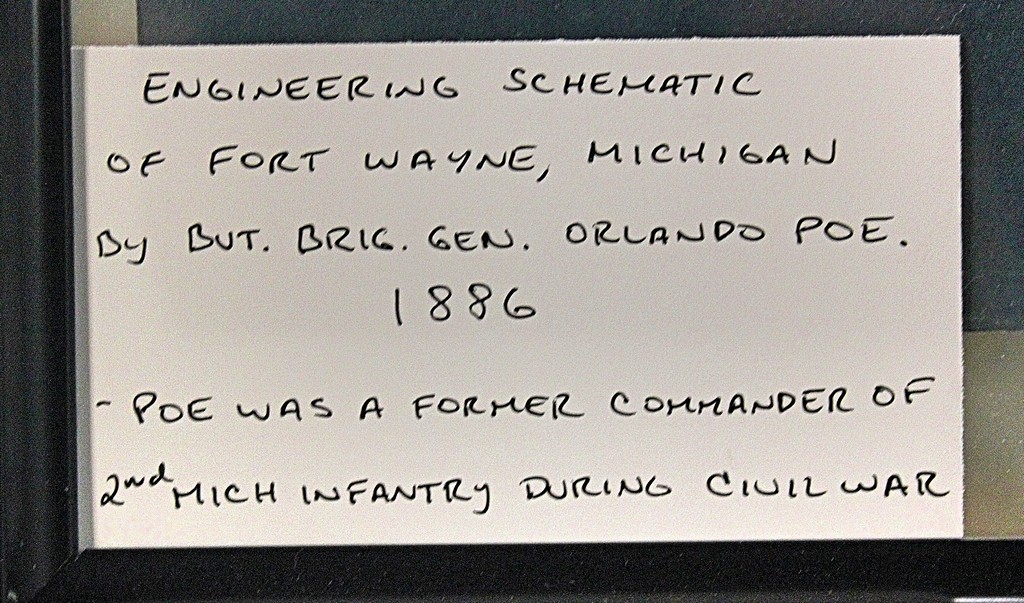 ENGINEERING SCHEMATIC
OF FORT WAYNE, MICHIGAN
By BVT. BRIG. GEN. ORLANDO POE.
1886
- POE WAS A FORMER COMMANDER OF
2nd MICH INFANTRY DURING CIVIL WAR